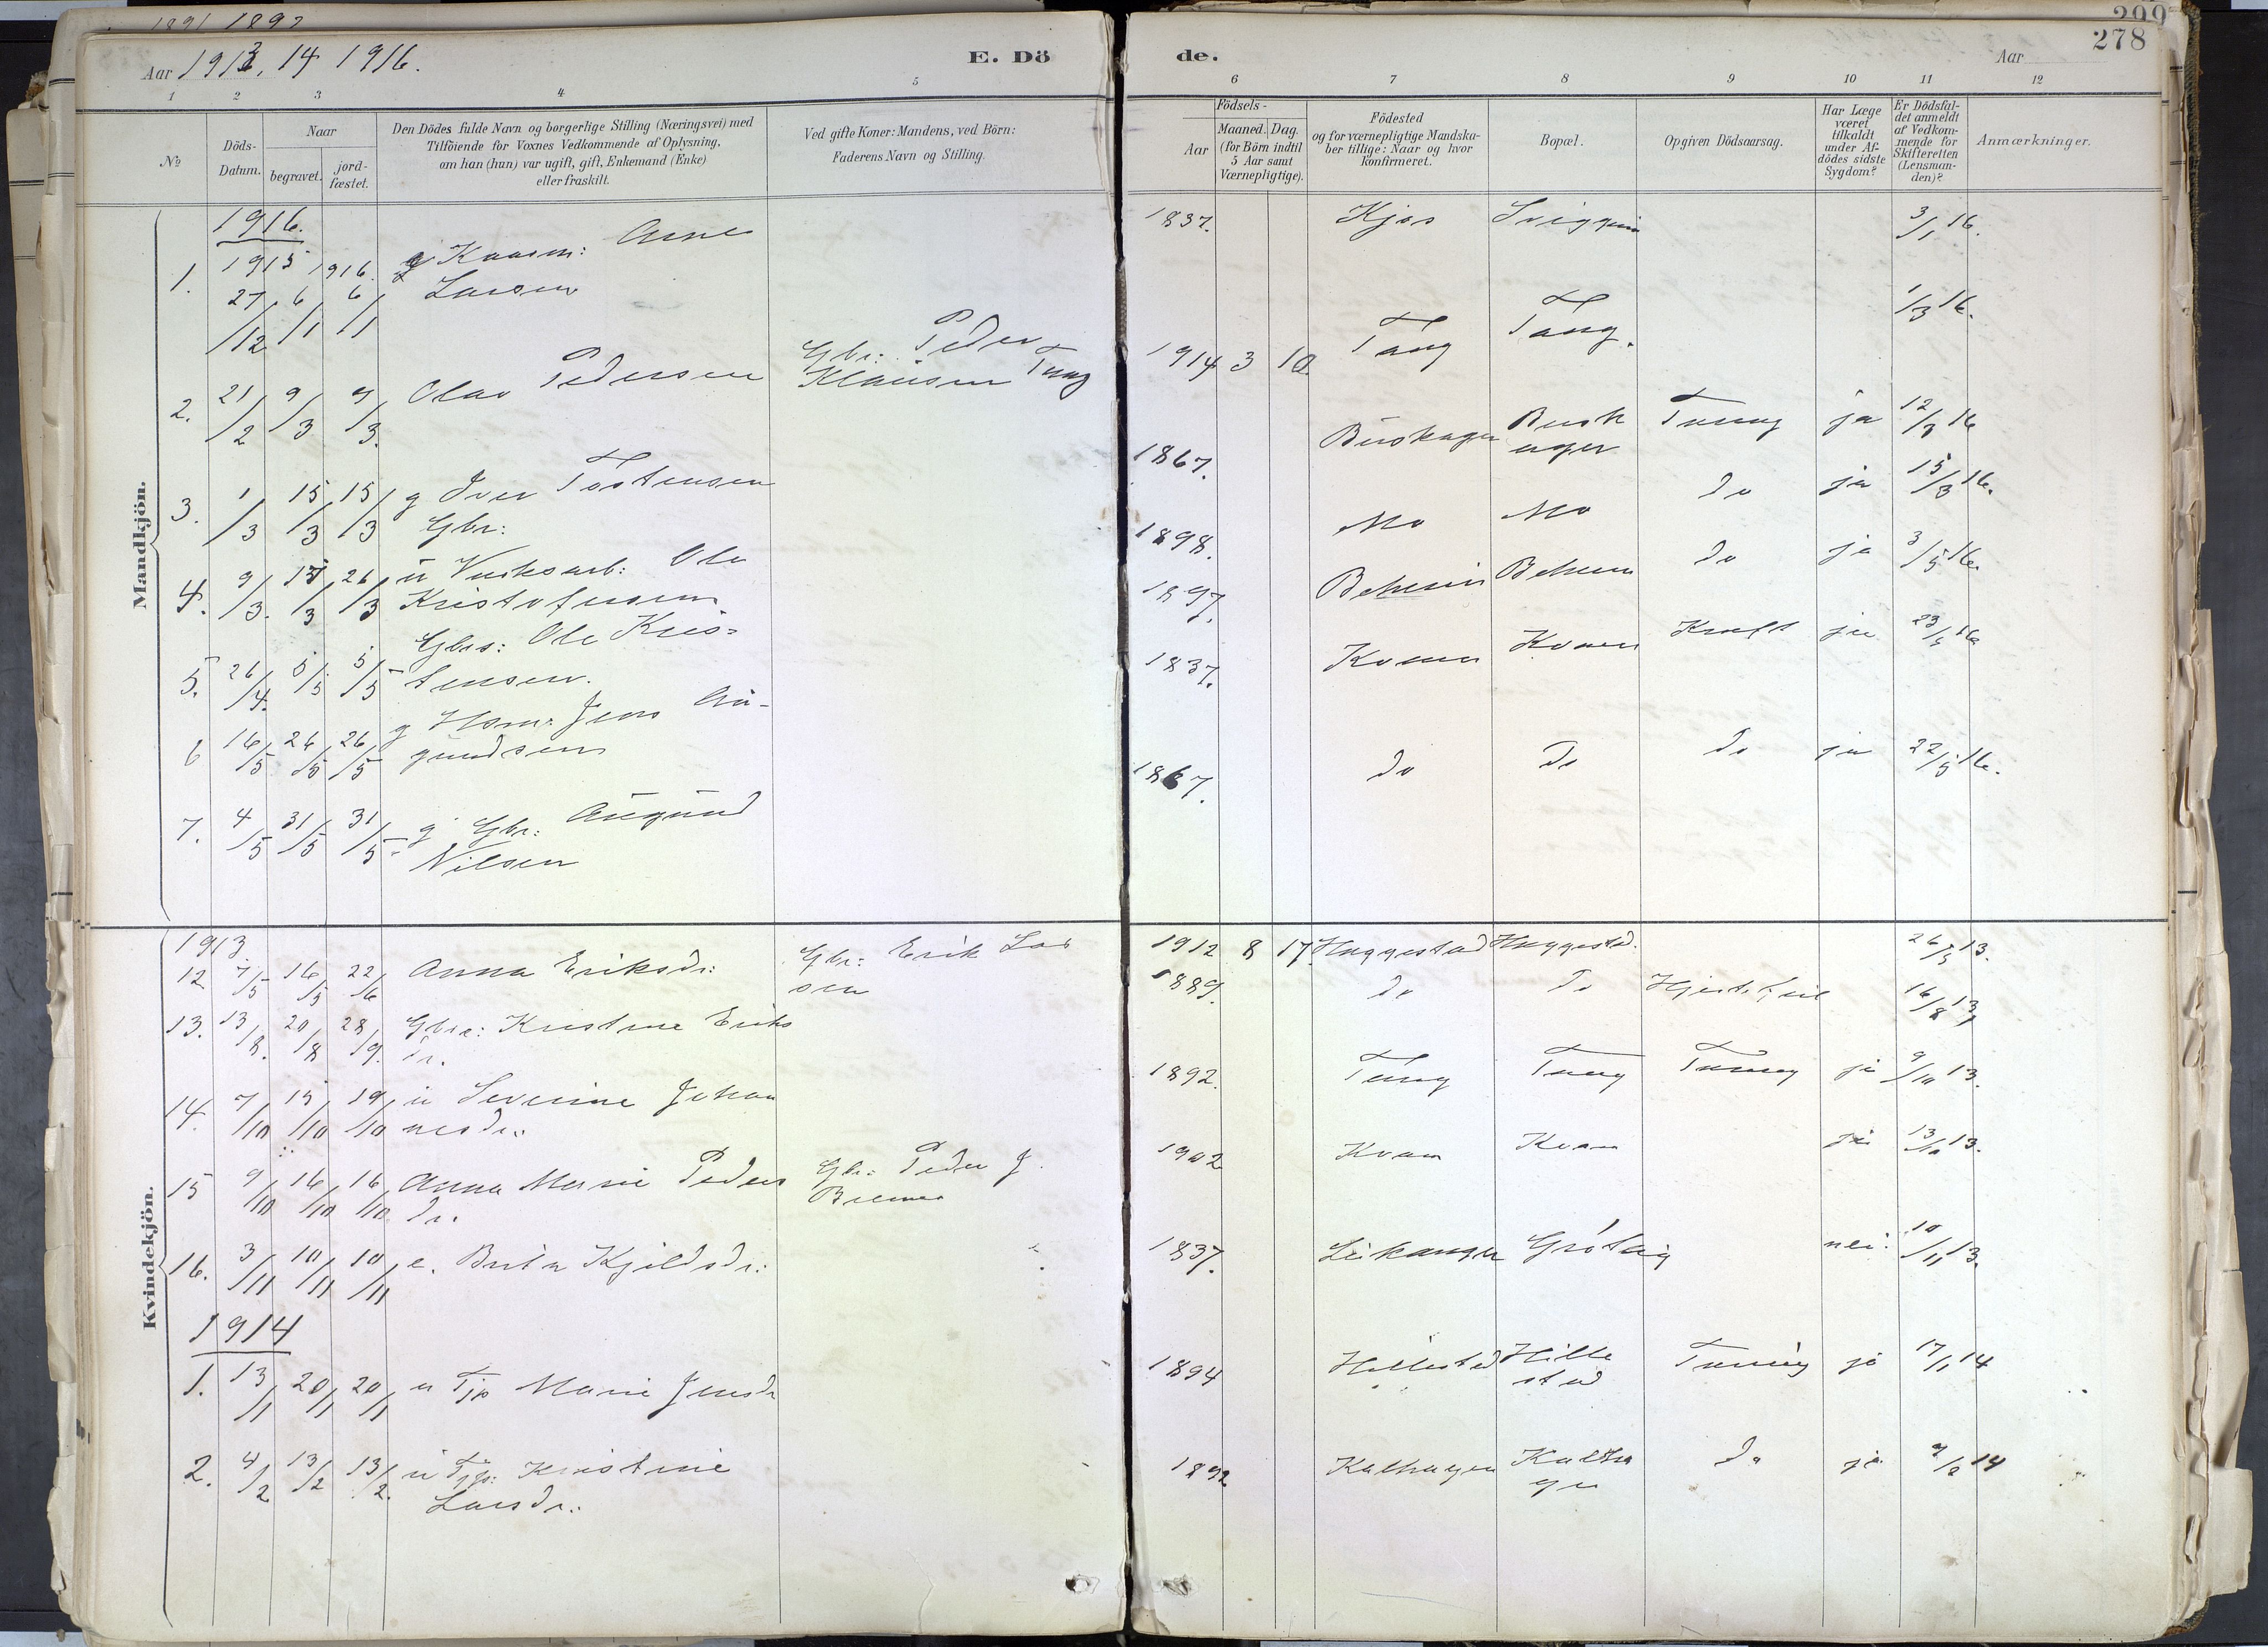 1891 1892
299
278
Aar 1913, 14 1916.
E. Dö
de.
Aar
1 2 3 4 5 6 7 8 9 10 11 12
№
Döds-
Datum.
Naar
begravet.
jord-
fæstet.
Den Dödes fulde Navn og borgerlige Stilling (Næringsvei) med
Tilföiende for Voxnes Vedkommende af Oplysning,
om han (hun) var ugift, gift, Enkemand (Enke)
eller fraskilt.
Ved gifte Koner: Mandens, ved Börn:
Faderens Navn og Stilling.
Födsels-
Aar
Maaned. Dag.
(for Börn indtil
5 Aar samt
Værnepligtige).
Födested
og for værnepligtige Mandska-
ber tillige: Naar og hvor
konfirmeret.
Bopæl.
Opgiven Dödsaarsag.
Har Læge
været
tilkaldt
under Af-
dödes sidste
Sygdom?
Er Dödsfal-
det anmeldt
af Vedkom-
mende for
Skifteretten
(Lensman-
den)?
Anmærkninger.
Mandkjön.
1916.
1915 1916
1. 27/12 6/1 6/1 g Kaarm: Arne
Larsen
1837. Kjos 3/1 16.
2. 21/2 9/3 9/3. Olav Pedersen Gbr: Peder
Klausen Tang
1914 3 10. Tang Tang. 1/3 16.
3. 1/3 15/3 15/3 g Iver Tostensen
Gbr:
1867. Buskager Busk
ager Tuung ja 12/3 16
4. 9/3. 15/3 26/3 u Verksarb: Ole
Kristofersen
1898. Mo Mo Do ja 15/3 16.
5. 26/4. 5/5 5/5 Gbrs: Ole Kris=
tensen.
1897. Do ja 3/5 16.
6 16/5 26/5 26/5 g Hsm: Jens Au-
gundsen
1837. Kvam Kvam Kreft ja 23/5 16
7. 4/5 31/5 31/5 g Gbr: Augund
Nilsen
1867. Do Do Do ja 22/5 16.
Kvindekjön.
1913.
12 7/5 16/5 22/6 Anna Eriksdr: Gbr: Erik Lar
sen
1912 8 17 Huggestad Huggestad. 26/5 13.
13. 13/8. 20/8 28/9. Kristine Eriks
dr.
1889. Do Do 16/8 13
14. 7/10 15/10 19/10 u Severine Johan
nesdr:
1892. Tang Tang ja 9/10 13.
15 9/10 16/10 16/10 Anna Marie Peders
dr. Gbr: Peder J.
1902 Kvam Kvam ja 13/10 13.
16. 3/11 10/11 10/11 e. Brita Kjeldsdr:
1837. Leikanger nei. 10/11 13.
1914
1. 13/1 20/1 20/1 u Tjp Marie Jensdr
1894 Hillestad Hille
stad ja 17/1 14
2. 4/2 13/2 13/2. u Tjp: Kristine
Larsdr:
1892 Kalhagen Kalha
gen Do ja 14